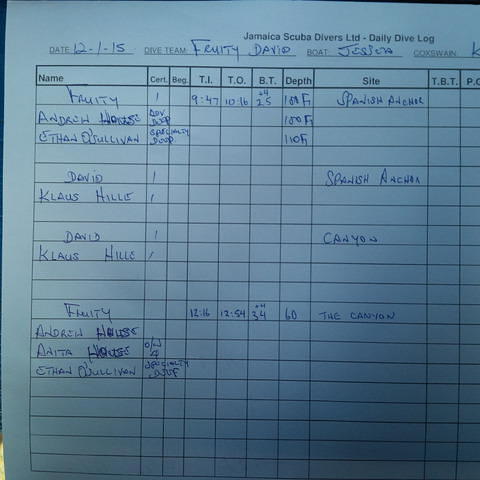 Jamaica Scuba Divers Ltd - Daily Dive Log
DATE: 12-1-15 DIVE TEAM: FRUITY DAVID BOAT: JESSICA COXSWAIN: K
Name Cert. Beg. T.I. T.O. B.T. Depth Site T.B.T. P.G
FRUITY 1 9:47 10:16 +4 25 100Ft SPANISH ANCHOR
ANDREW HOUSE ADV DEEP 100Ft
ETHAN O'SULLIVAN SPECIALTY DEEP 110Ft
DAVID 1 SPANISH ANCHOR
KLAUS HILLE 1
DAVID 1 CANYON
KLAUS HILLE 1
FRUITY 12:16 12:54 +4 34 60 THE CANYON
ANDREW HOUSE
ANITA HOUSE O/W
ETHAN O'SULLIVAN SPECIALTY DEEP